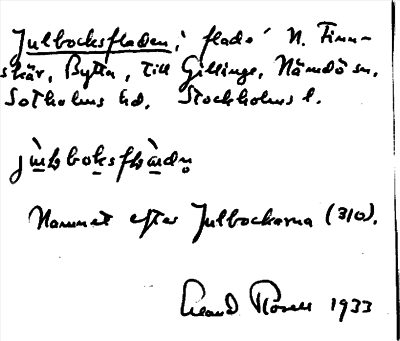 Julbocksfladen; flade N. Finn-
skär, Bytta, till Gillinge, Nämdö sn,
Sotholms hd, Stockholms l.
Namnet efter Julbockarna (310).
Erland Rosell 1933